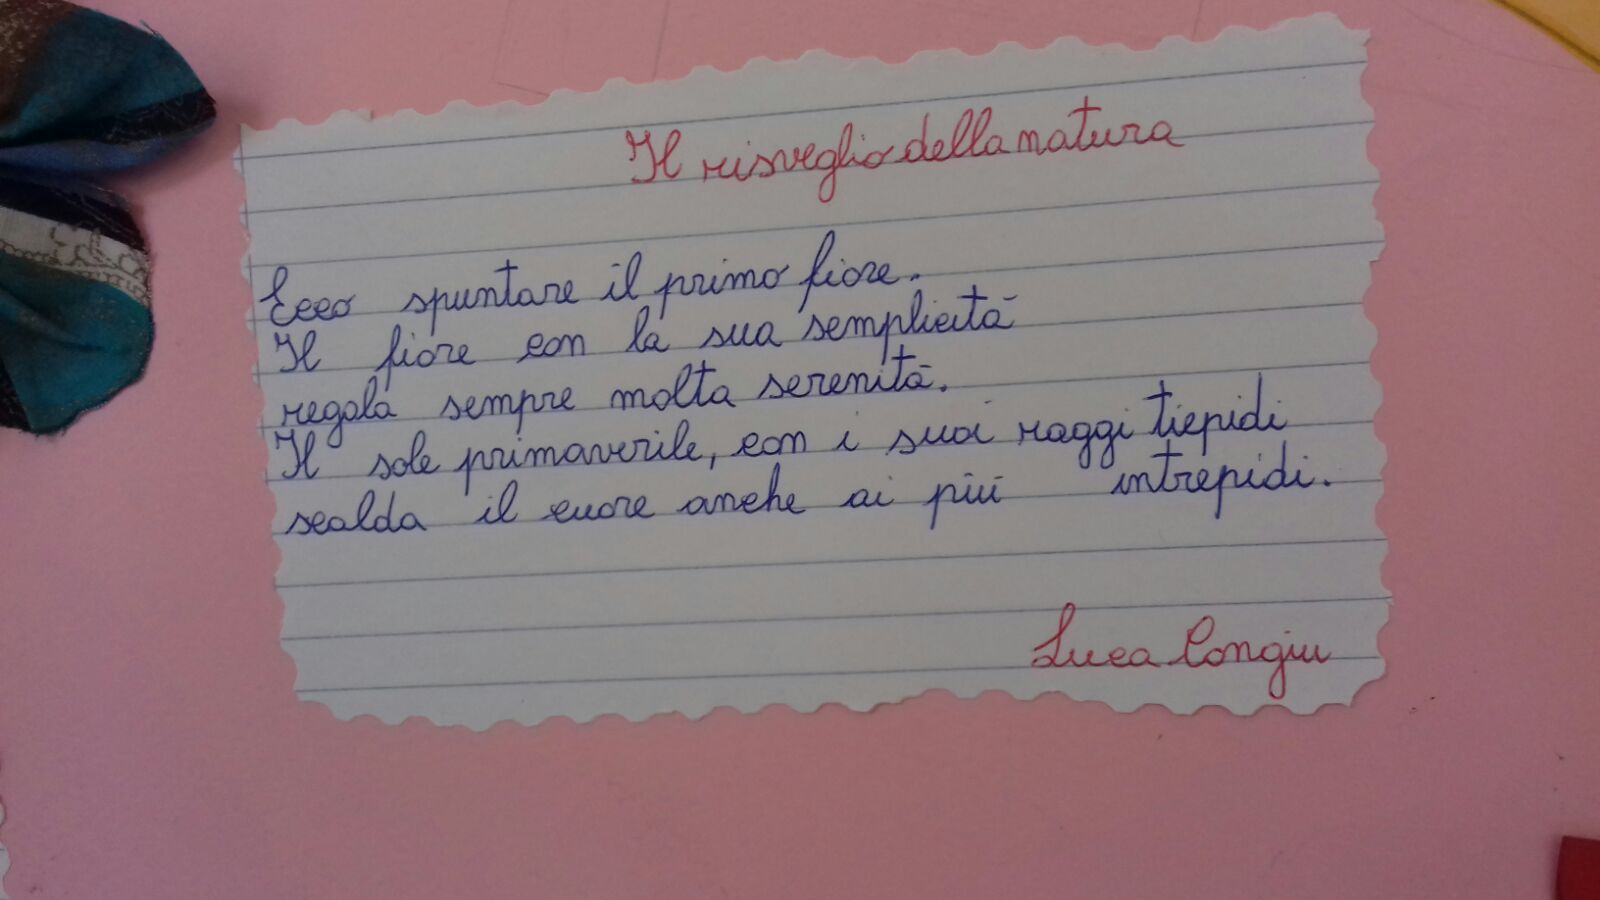 Il risveglio della natura
Ecco spuntare il primo fiore.
Il fiore con la sua semplicità
regala sempre molta serenità.
Il sole primaverile, con i suoi raggi tiepidi
scalda il cuore anche ai più intrepidi.
Luca Congiu